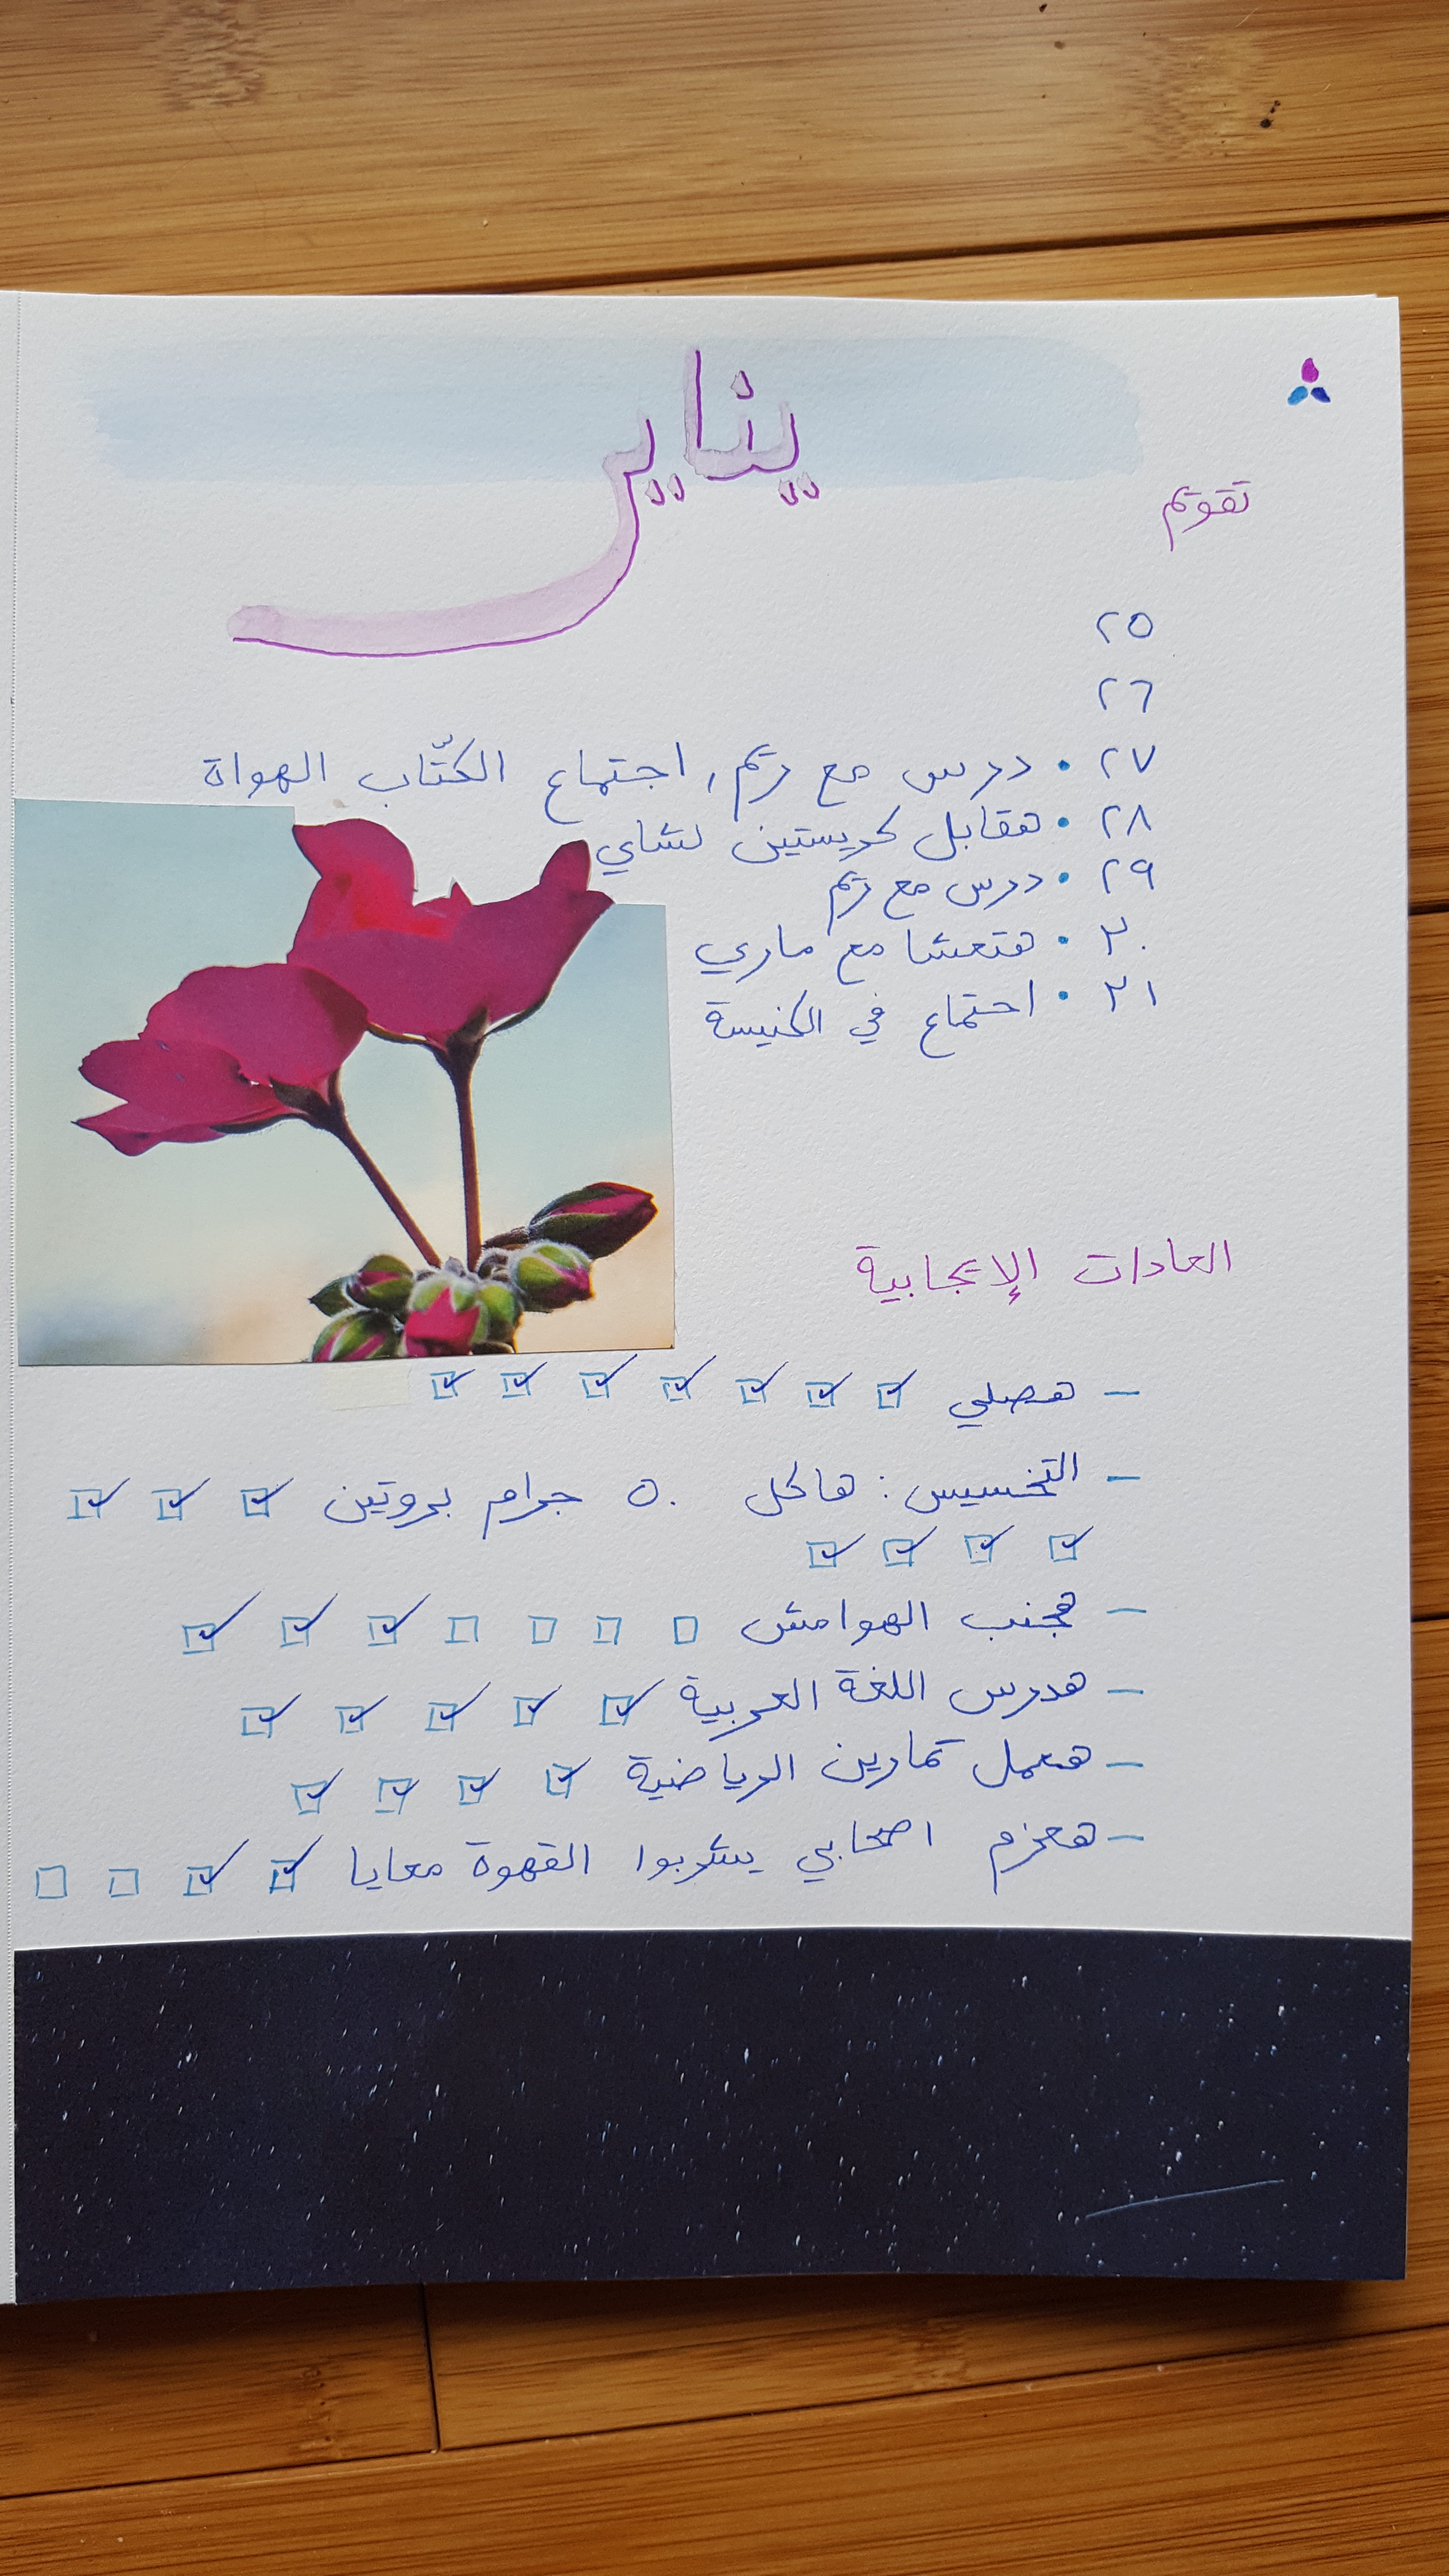 يناير
تقويم
٢٥
٢٦
٢٧ • درس مع ريم, اجتماع الكتّاب الهواة
٢٨ • هقابل كريستين لشاي
٢٩ • درس مع ريم
٣٠ • هتعشا مع ماري
٣١ • احتماع في الكنيسة
العادات الإيجابية
- هصلي ☑ ☑ ☑ ☑ ☑ ☑ ☑
- التخسيس: هاكل ٥٠ جرام بروتين ☑ ☑ ☑
☑ ☑ ☑ ☑
- هجنب الهوامش ☐ ☐ ☐ ☐ ☑ ☑ ☑
- هدرس اللغة العربية ☑ ☑ ☑ ☑ ☑
- هعمل تمارين الرياضية ☑ ☑ ☑ ☑
- هعزم اصحابي يشربوا القهوة معايا ☑ ☑ ☐ ☐